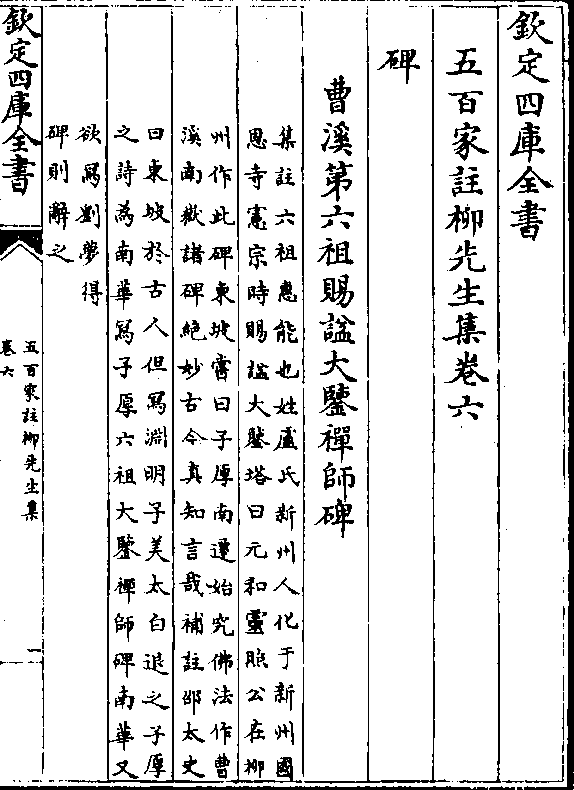 欽定四庫全書
五百家註柳先生集卷六
碑
曹溪第六祖賜諡大鑒禪師碑
集註六祖惠能也姓盧氏新州人化于新州國
恩寺憲宗時賜諡大鑒塔曰元和靈照公在柳
州作此碑東坡嘗曰子厚南遷始究佛法作曹
溪南嶽諸碑絶妙古今真知言哉補註邵太史
曰東坡於古人但寫淵明子美太白退之子厚
之詩為南華寫子厚六祖大鑒禪師碑南華又
欲寫劉夢得
碑則辭之
欽定四庫全書
五百家註柳先生集
卷六
一